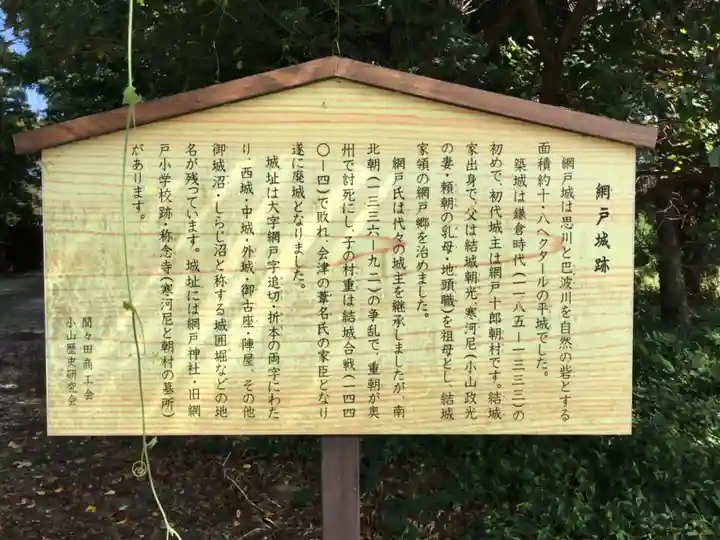 網戸城跡
網戸城は思川と巴波川を自然の砦とする
面積約十・八ヘクタールの平城でした。
築城は鎌倉時代(一一八五ー一三三三)の
初めで、初代城主は網戸十郎朝村です。結城
家出身で、父は結城朝光、寒河尼(小山政光
の妻・頼朝の乳母・地頭職)を祖母とし、結城
家領の網戸郷を治めました。
網戸氏は代々の城主を継承しましたが、南
北朝(一三三六ー九二)の争乱で、重朝が奥
州で討死にし、子の村重は結城合戦(一四四
〇ー四一)で敗れ、会津の葦名氏の家臣となり
遂に廃城となりました。
城址は大字網戸字追切・折本の両字にわた
り、西城・中城・外城、御古座・陣屋、その他
御城沼・しらじ沼と称する城囲堀などの地
名が残っています。城址には網戸神社・旧網
戸小学校跡・称念寺(寒河尼と朝村の墓所)
があります。
間々田商工会
小山歴史研究会